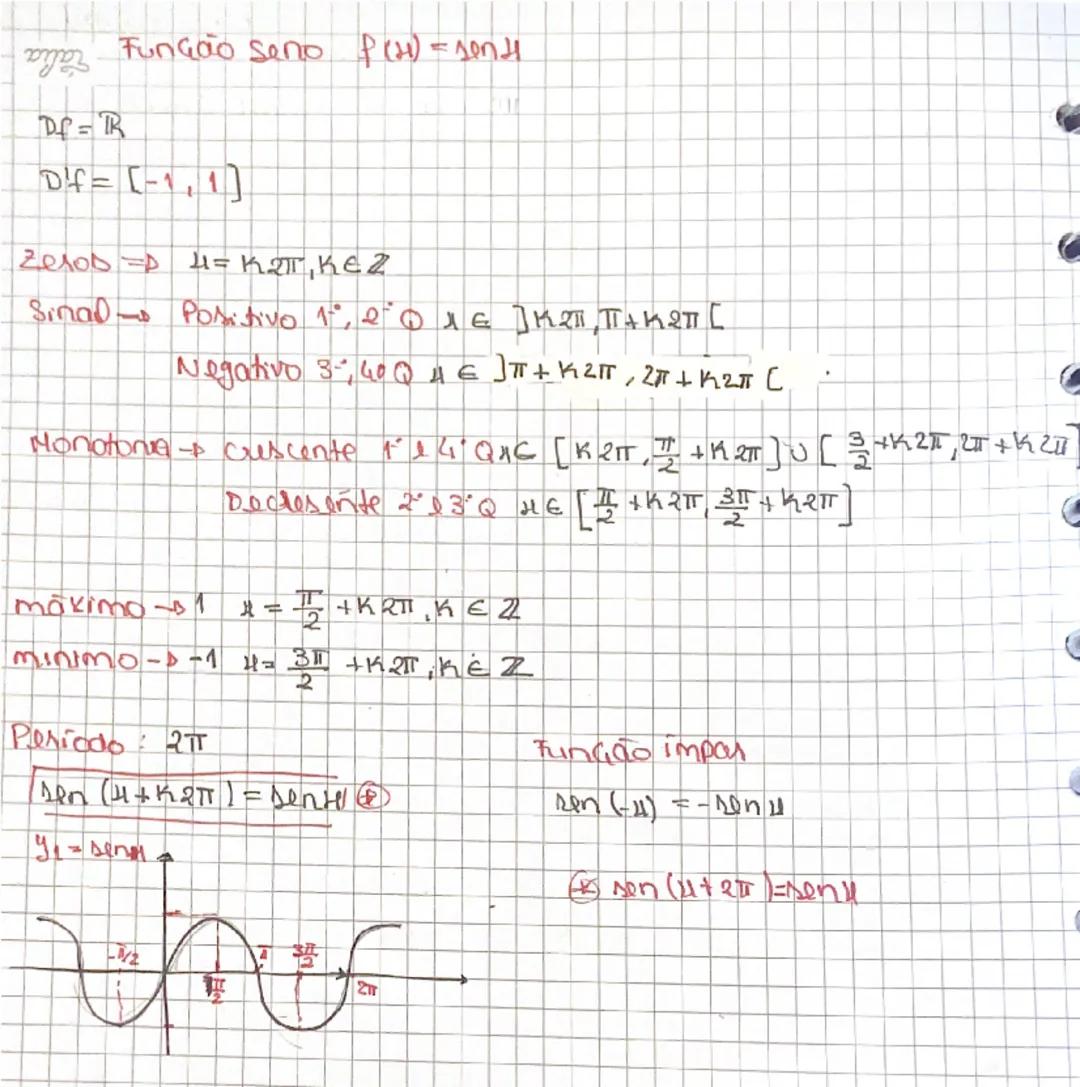 Tália
Função seno f(x) = sen x
Df = ℝ
D'f = [-1, 1]
Zeros => x = K2π, K ∈ ℤ
Sinal → Positivo 1º, 2º Q x ∈ ]K2π, π + K2π[
Negativo 3º, 4º Q x ∈ ]π + K2π, 2π + K2π[
Monotonia → Crescente 1º e 4º Q x ∈ [K2π, π/2 + K2π] ∪ [3/2 + K2π, 2π + K2π]
Decresente 2º e 3º Q x ∈ [π/2 + K2π, 3π/2 + K2π]
máximo → 1 x = π/2 + K2π, K ∈ ℤ
minimo → -1 x = 3π/2 + K2π, K ∈ ℤ
Período: 2π
Função ímpar
sen (x + K2π) = sen x ⊛
sen (-x) = - sen x
y₁ = sen x
⊛ sen (x + 2π) = sen x
-π/2
π
3π/2
π/2
2π